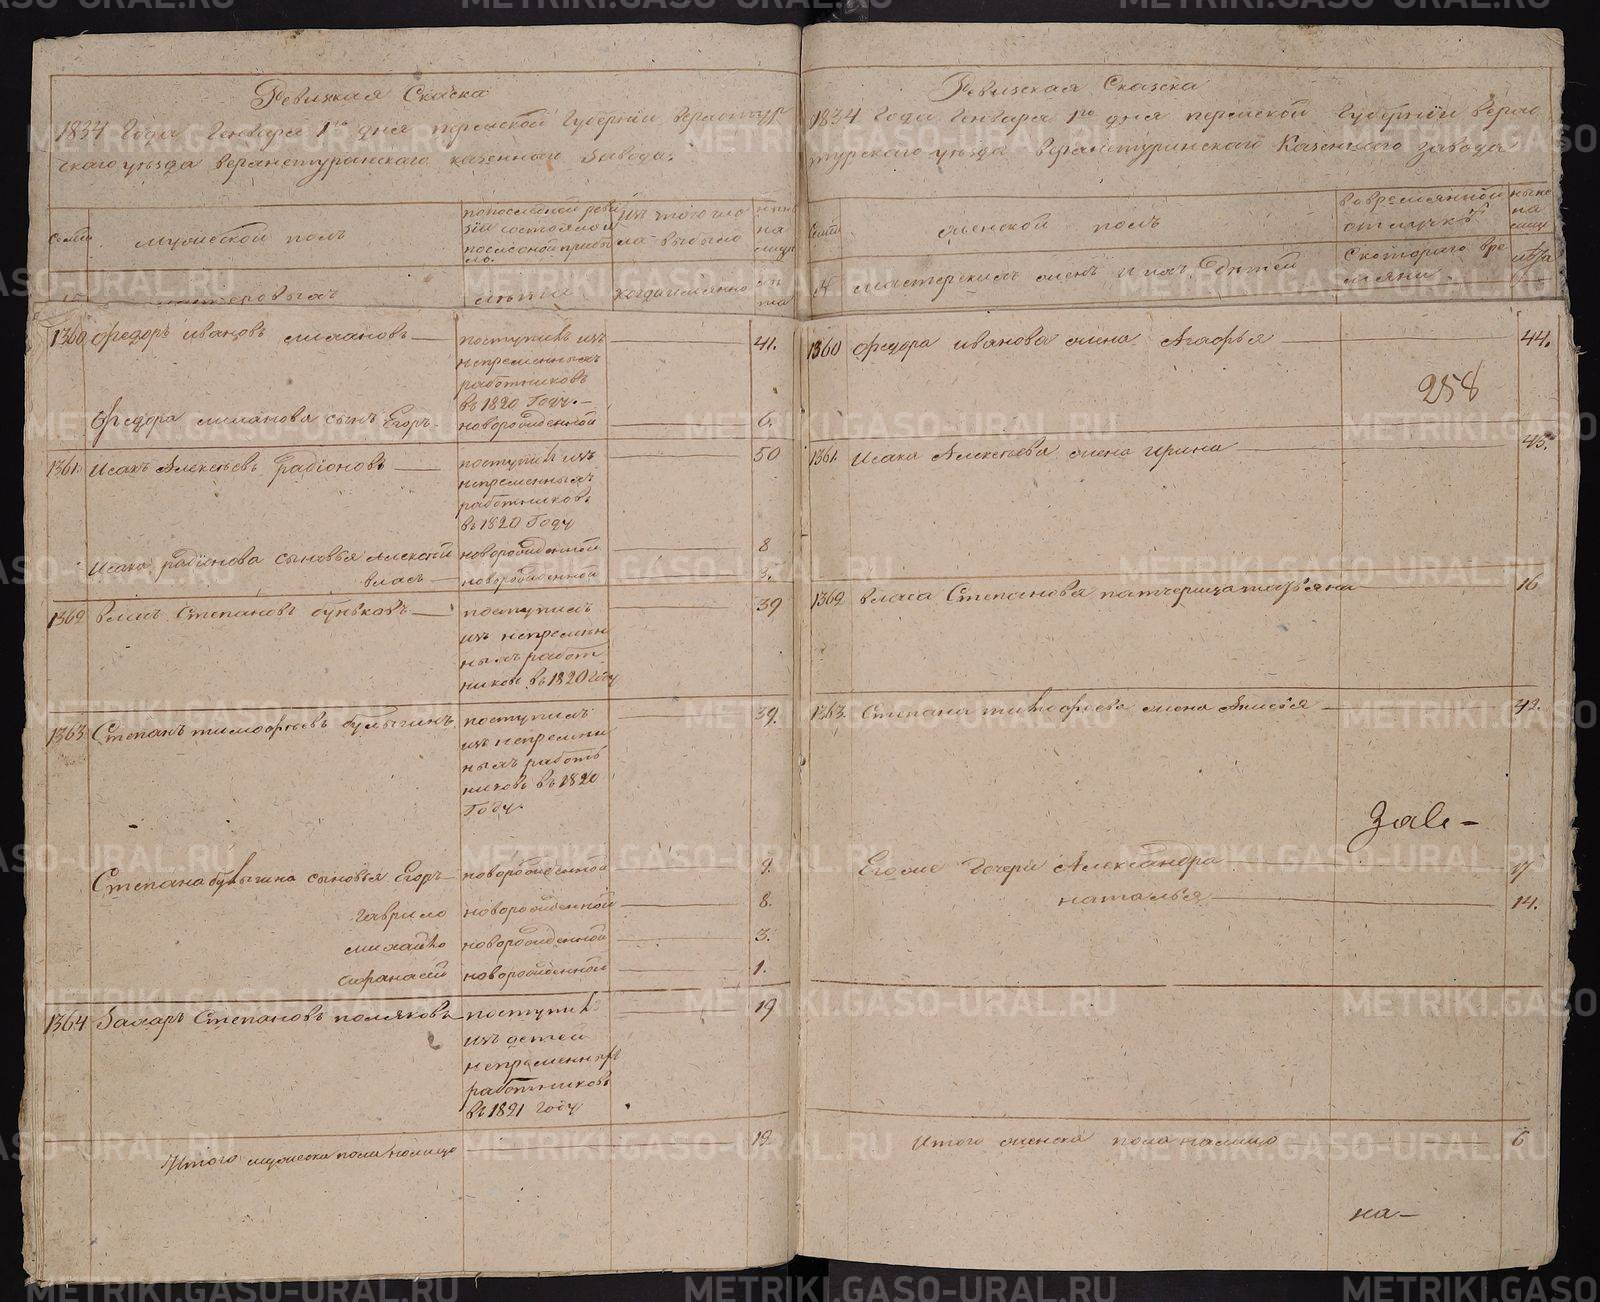 Ревижская Скаска
1834 Года Генваря 1го дня пермской Губернии верхотур
скаго уезда верхнетуринскаго казеннаго Завода.
семьи
мужеской полъ
попоследной реви
зіи состояло и
после оной прибы
ло.
изъ того чис
ла выбыло
ныне
на
лицо
мастеровыхъ
лета
когда имянно
ле
та
1360 Федоръ ивановъ
поступилъ изъ
непременныхъ
работниковъ
въ 1820 Году.
41.
Федора сынъ Егоръ
новорожденной
6.
1361. Исакъ Алексеевъ радіоновъ
поступилъ изъ
непременныхъ
работниковъ
въ 1820 Году
50
Исака радіонова сыновья алексей
новорожденной
8
власъ
новорожденной
3.
1362 власъ Степановъ
поступилъ
изъ непремен
ныхъ работ
никовъ въ 1820 Году
39
1363 Степанъ тимофеевъ булыгинъ
поступилъ
изъ непремен
ныхъ работъ
никовъ въ 1820
Году.
39.
Степана булыгина сыновья Егоръ
новорожденной
9.
гаврило
новорожденной
8.
михайло
новорожденной
3.
афанасей
новорожденной
1.
1364 Захаръ Степановъ поляковъ
поступилъ
изъ детей
непременныхъ
работниковъ
въ 1821 Году
19
Итого мужеска пола налицо
12
Ревизская Сказска
1834 Года Генваря 1го дня пермской Губерніи верхо
турскаго уезда верхнетуринскаго Казеннаго завода
Семьи
женской полъ
во временной
отлучке
ныне
на
лицо
№ мастерскихъ женъ и ихъ детей
Скотораго вре
мяни
лета
1360 Федора иванова жена Агафья
44.
258
1361. Исака Алексеева жена ирина
45.
1362 власа Степанова патчерица татьяна
16
1363. Степана тимофеева жена Анисья
42.
Заве-
Егоже дочери Александра
17
наталья
14.
Итого женска пола налицо
6
на-
METRIKI.GASO-URAL.RU